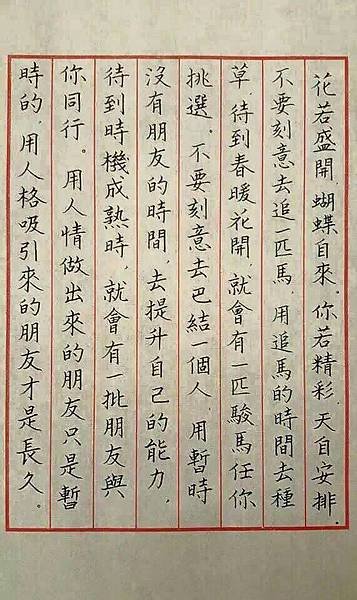 花若盛開，蝴蝶自來。你若精彩，天自安排。
不要刻意去追一匹馬，用追馬的時間去種
草，待到春暖花開，就會有一匹駿馬任你
挑選。不要刻意去巴結一個人，用暫時
沒有朋友的時間，去提升自己的能力，
待到時機成熟時，就會有一批朋友與
你同行。用人情做出來的朋友只是暫
時的，用人格吸引來的朋友才是長久。